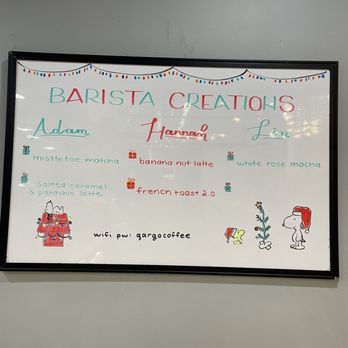 BARISTA CREATIONS
Adam Hannah Lin
mistletoe matcha banana nut latte white rose mocha
salted caramel
& pistachio latte french toast 2.0
wifi pw: gargocoffee